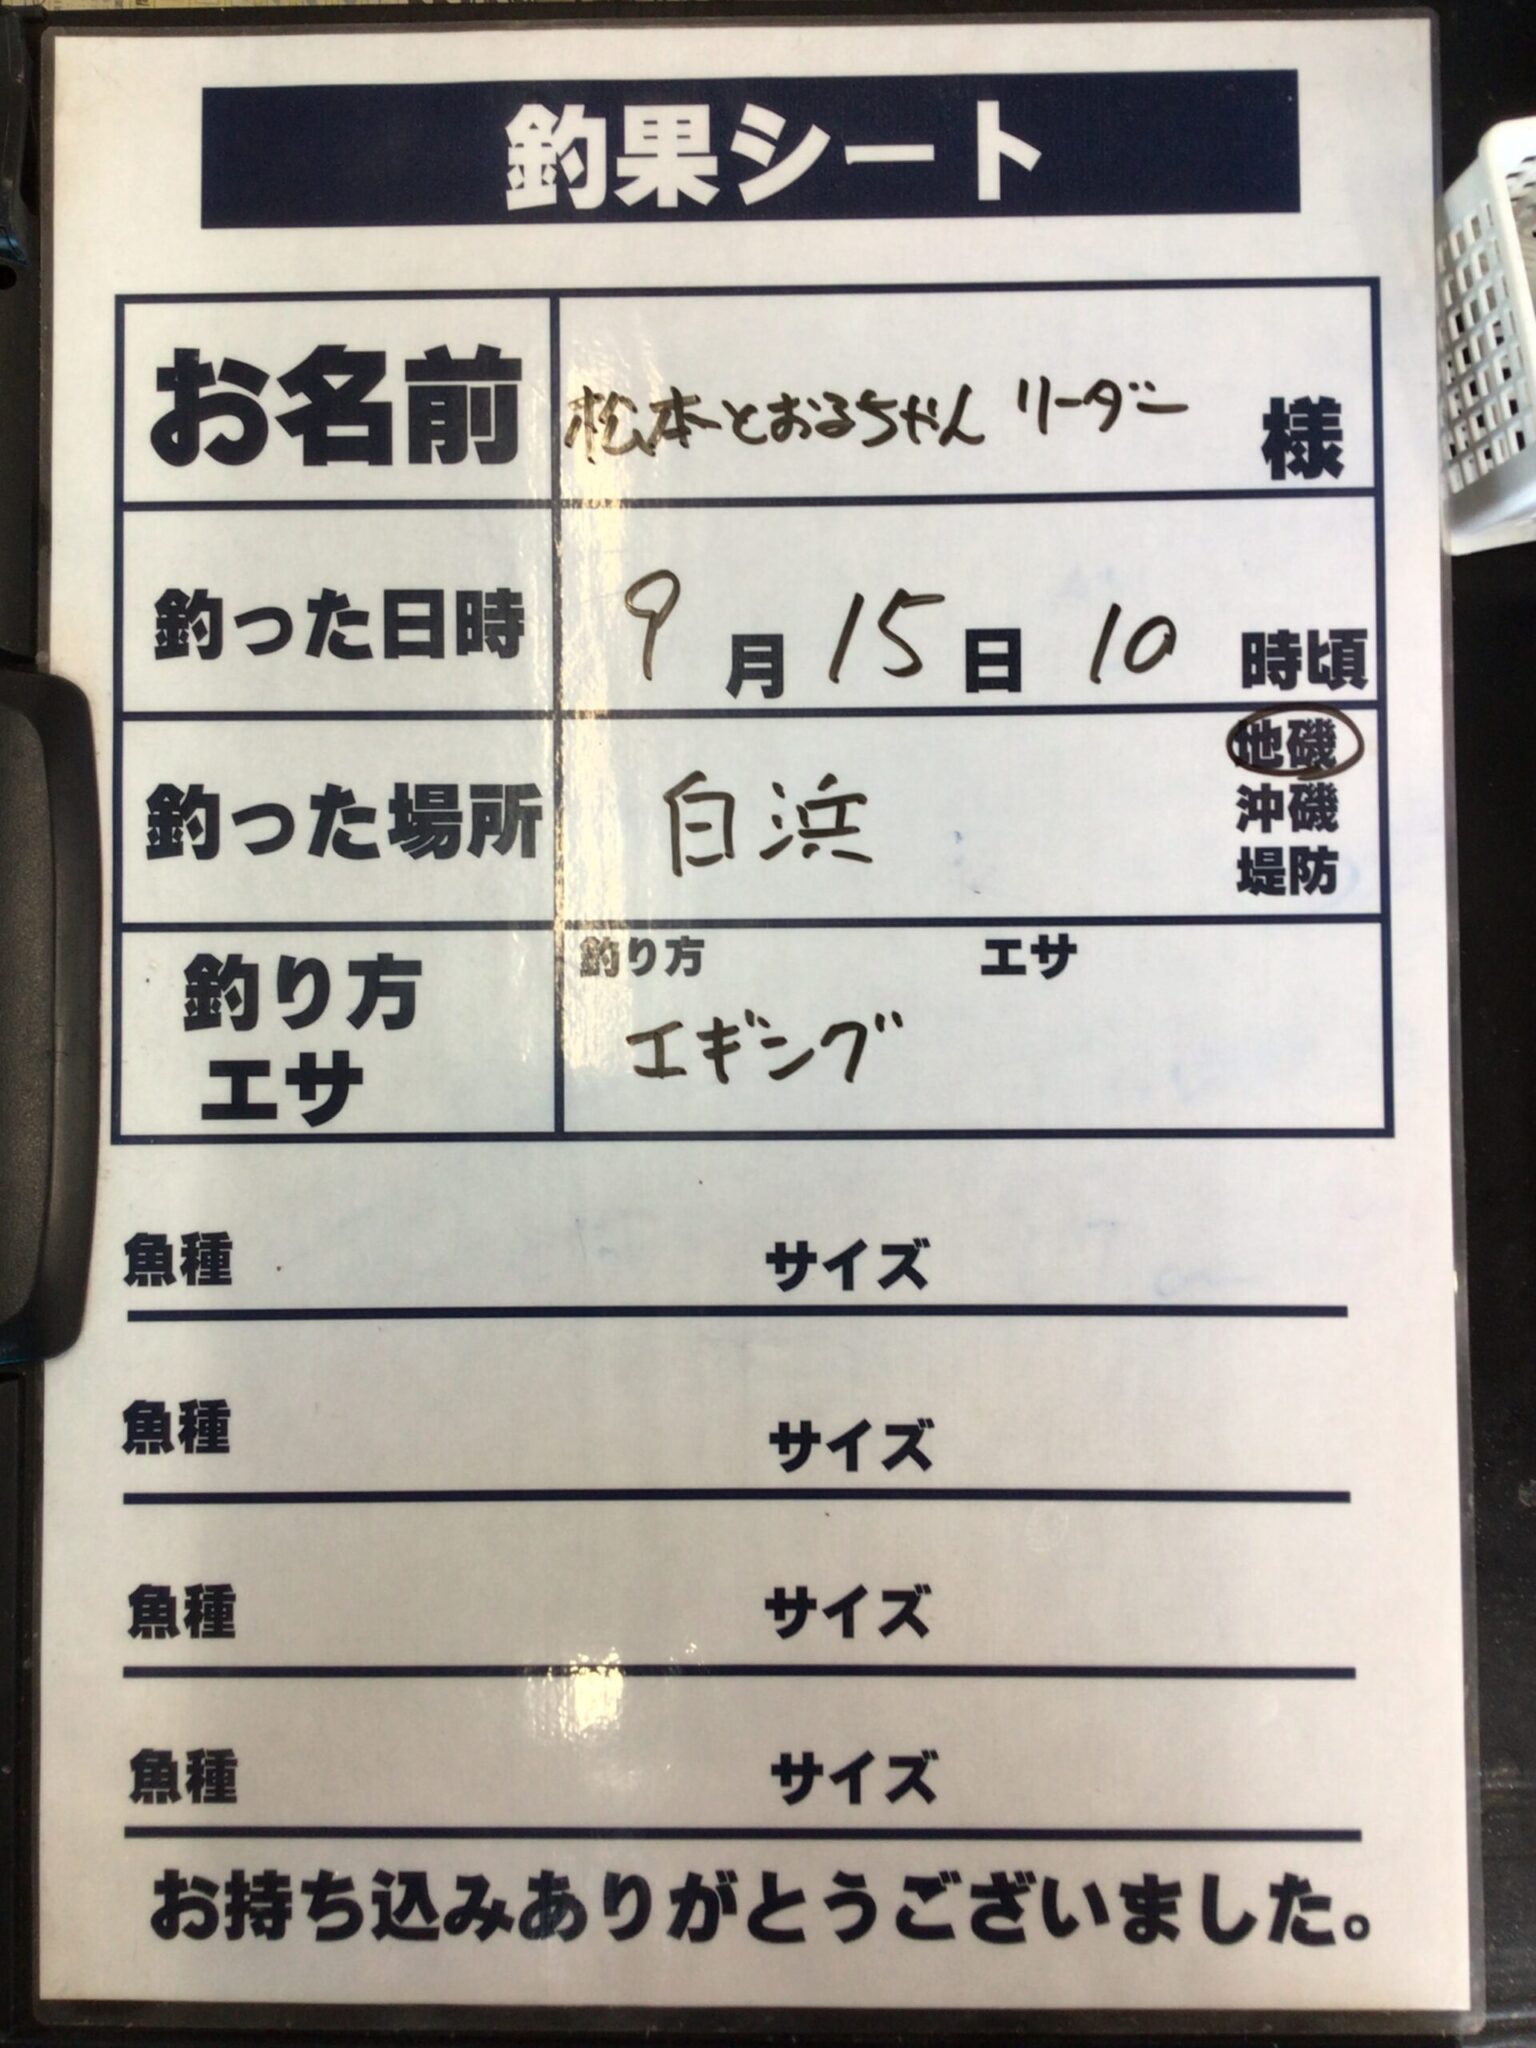 釣果シート
お名前 松本とおるちゃん リーダー 様
釣った日時 9月15日10時頃
釣った場所 白浜 地磯
沖磯
堤防
釣り方 エサ
釣り方 エサ
エギング
魚種 サイズ
魚種 サイズ
魚種 サイズ
魚種 サイズ
お持ち込みありがとうございました。